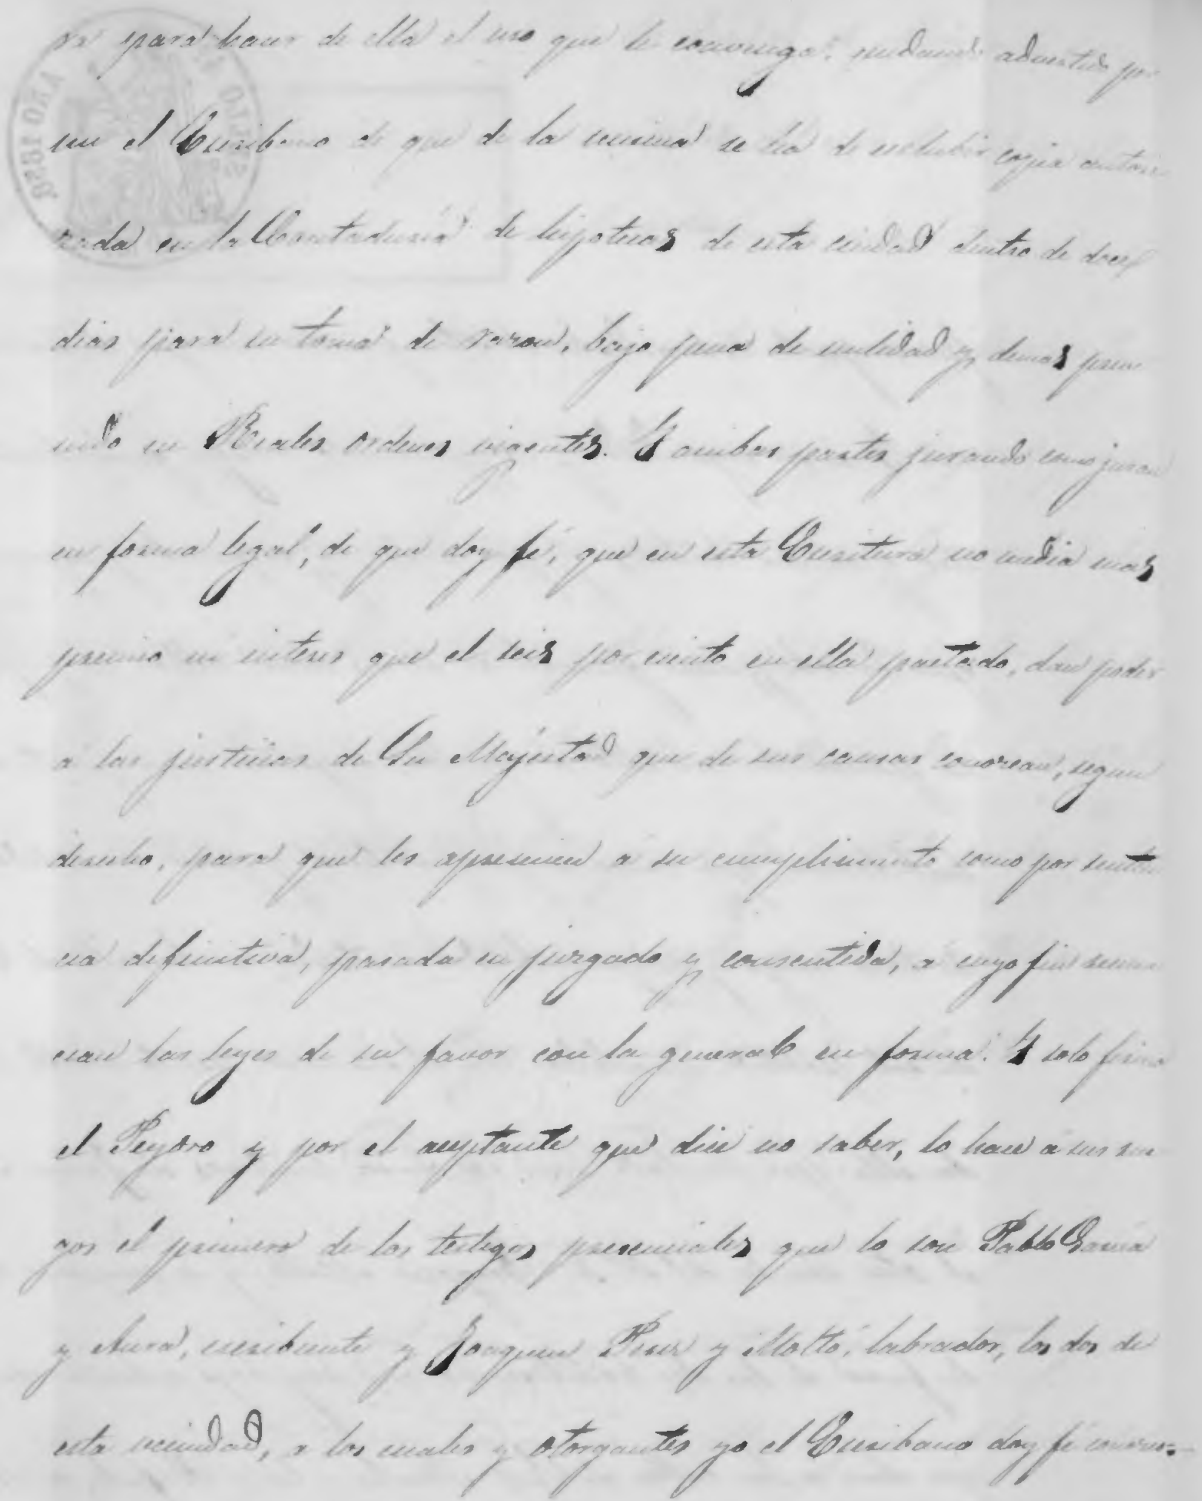 ra para hacer de ella el uso que le convenga: quedando advertido por
mi el Escribano de que de la misma se ha de exhibir copia autori
zada en la Contaduria de hipotecas de esta ciudad dentro de doce
dias para su toma de razon, bajo pena de nulidad y demas preve
nido en Reales ordenes vigentes. Y ambas partes jurando como juran
en forma legal, de que doy fé, que en esta Escritura no media mas
premio ni interes que el seis por ciento en ella pactado, dan poder
a las justicias de Su Majestad que de sus causas conozcan, segun
derecho, para que les apremien a su cumplimiento como por senten
cia definitiva, pasada en juzgado y consentida, a cuyo fin renun
cian las leyes de su favor con la general en forma. Y solo firma
el Peydro y por el aceptante que dice no saber, lo hace a sus rue
gos el primero de los testigos presenciales que lo son Pablo Garcia
y Aura, escribiente y Joaquin Perez y Moltó, labrador, los dos de
esta vecindad, a los cuales y otorgantes yo el Escribano doy fé conozco.